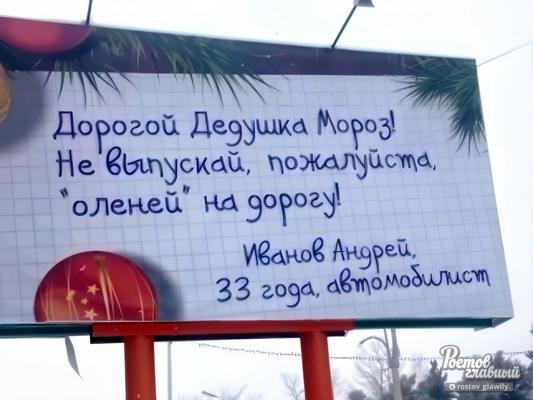 Дорогой Дедушка Мороз!
Не выпускай, пожалуйста,
"оленей" на дорогу!
Иванов Андрей,
33 года, автомобилист
Ростов
главный
rostov_glavniy.